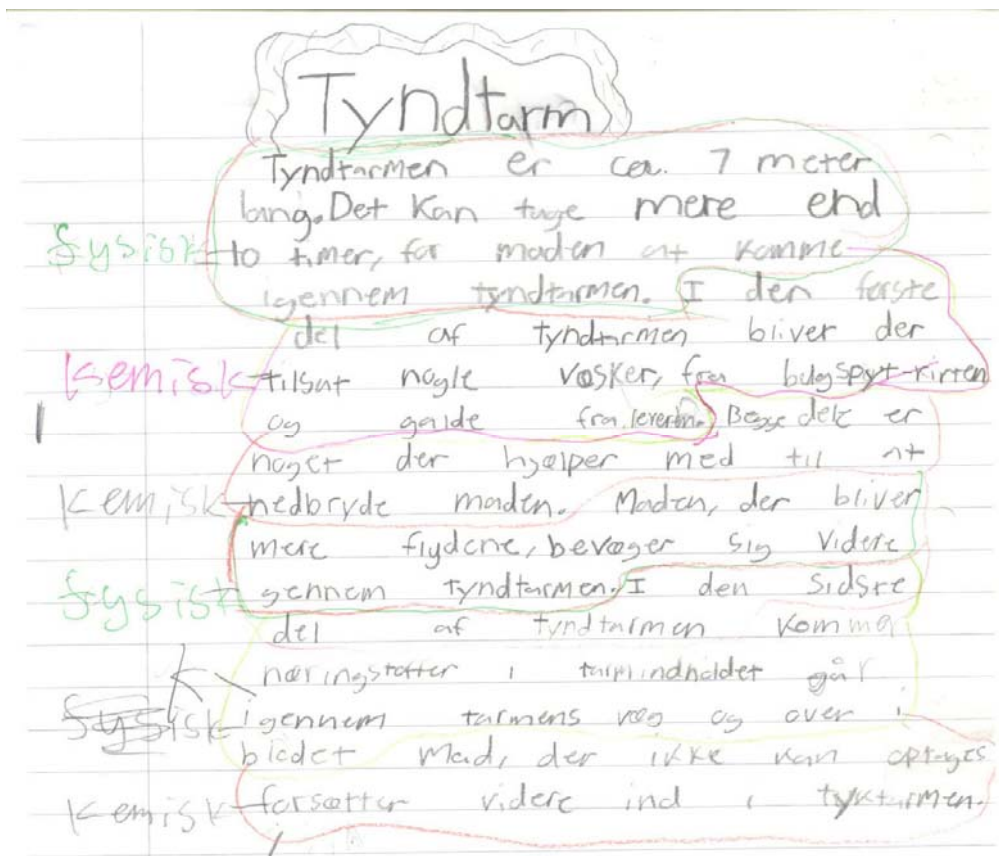 Tyndtarm
Tyndtarmen er ca. 7 meter
lang. Det kan tage mere end
fysisk to timer, for maden at komme
igennem tyndtarmen. I den første
del af tyndtarmen bliver der
kemisk tilsat nogle væsker, fra bugspyt-kirten
og galde fra leveren. Begge dele er
noget der hjælper med til at
kemisk nedbryde maden. Maden, der bliver
mere flydene, bevæger sig videre
fysisk gennem tyndtarmen. I den sidste
del af tyndtarmen kommer
K næringstoffer i tarmindholdet går
fysisk igennem tarmens væg og over i
blodet Mad, der ikke kan optages
kemisk forsætter videre ind i tyktarmen.